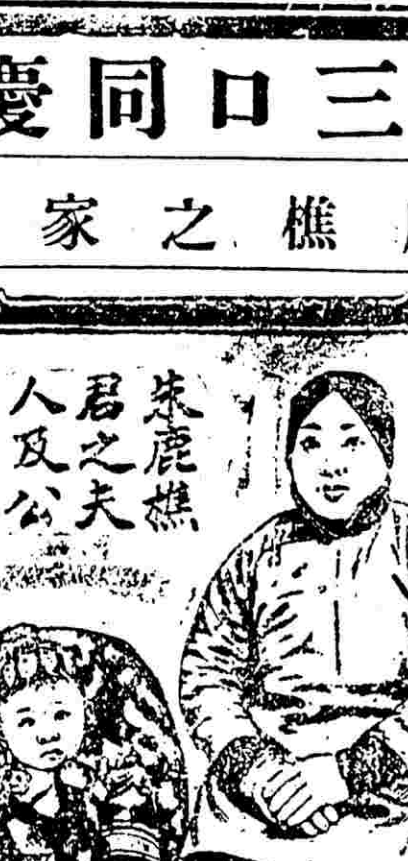 三口同慶
樵之家
朱鹿樵
君之夫
人及公